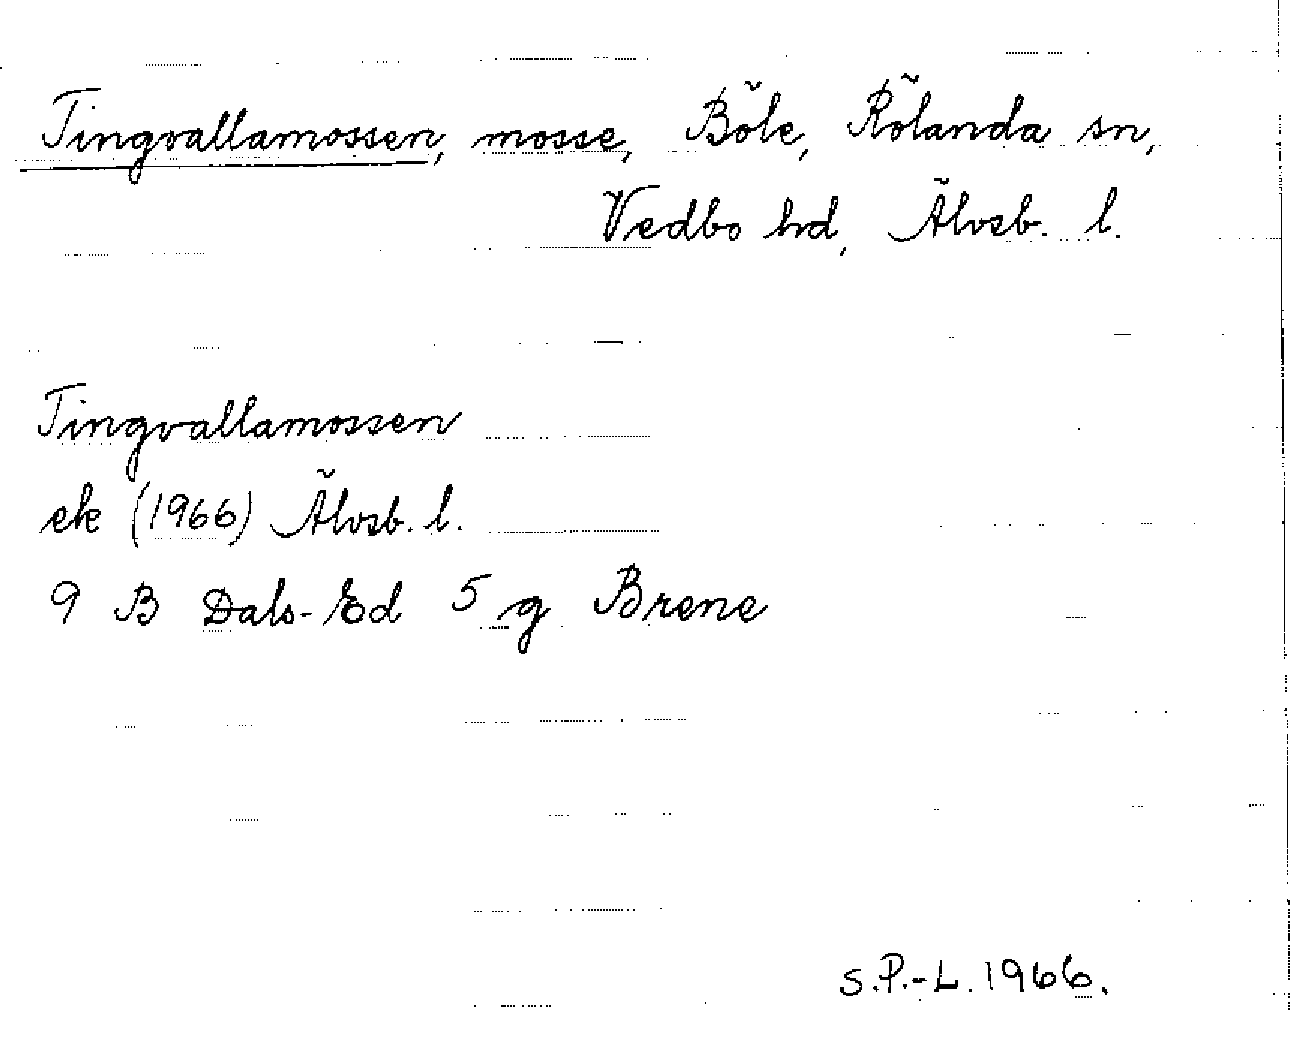 Tingvallamossen, mosse, Böle, Rölanda sn,
Vedbo hd, Älvsb. l.
Tingvallamossen
ek (1966) Älvsb. l.
9 B Dals-Ed 5 g Brene
S.P.-L. 1966.